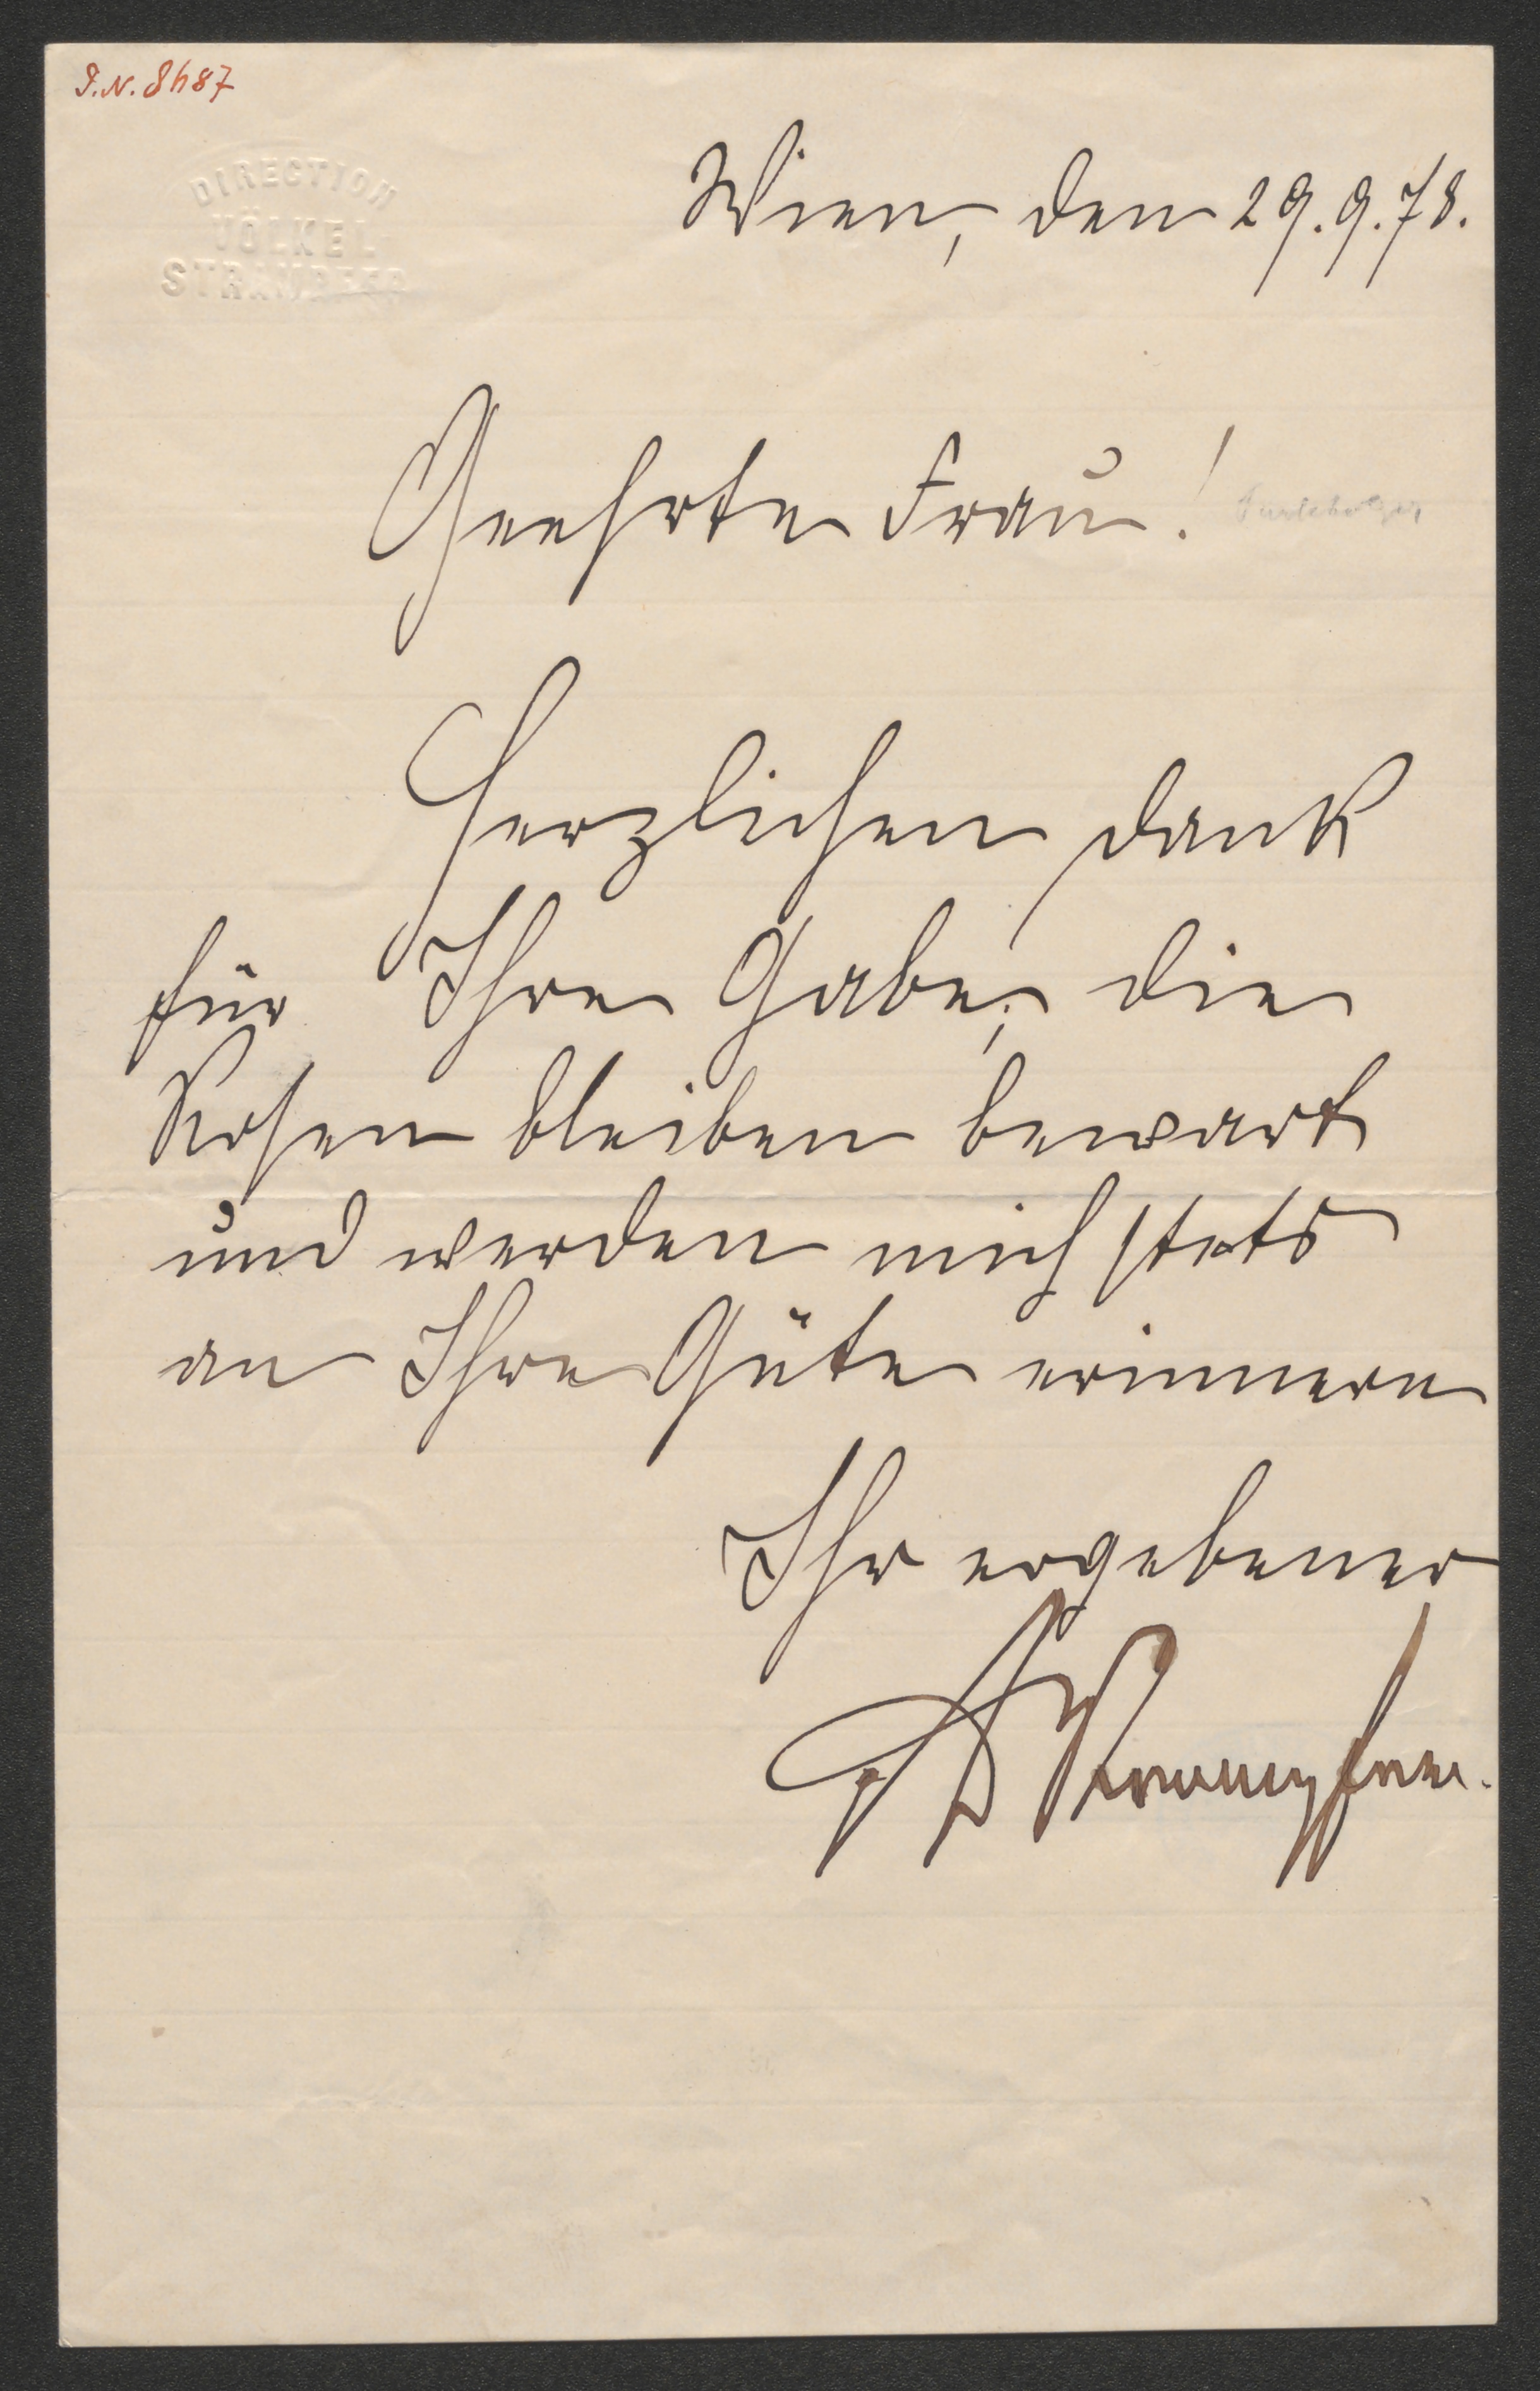 J.N. 8487
DIRECTION
VÖLKEL
Wien, den 29.9.78.
Geehrte Frau!
Herzlichen Dank
für Ihre Gabe, die
Rosen bleiben bewart
und werden mich stets
an Ihre Güte erinnern
Ihr ergebener